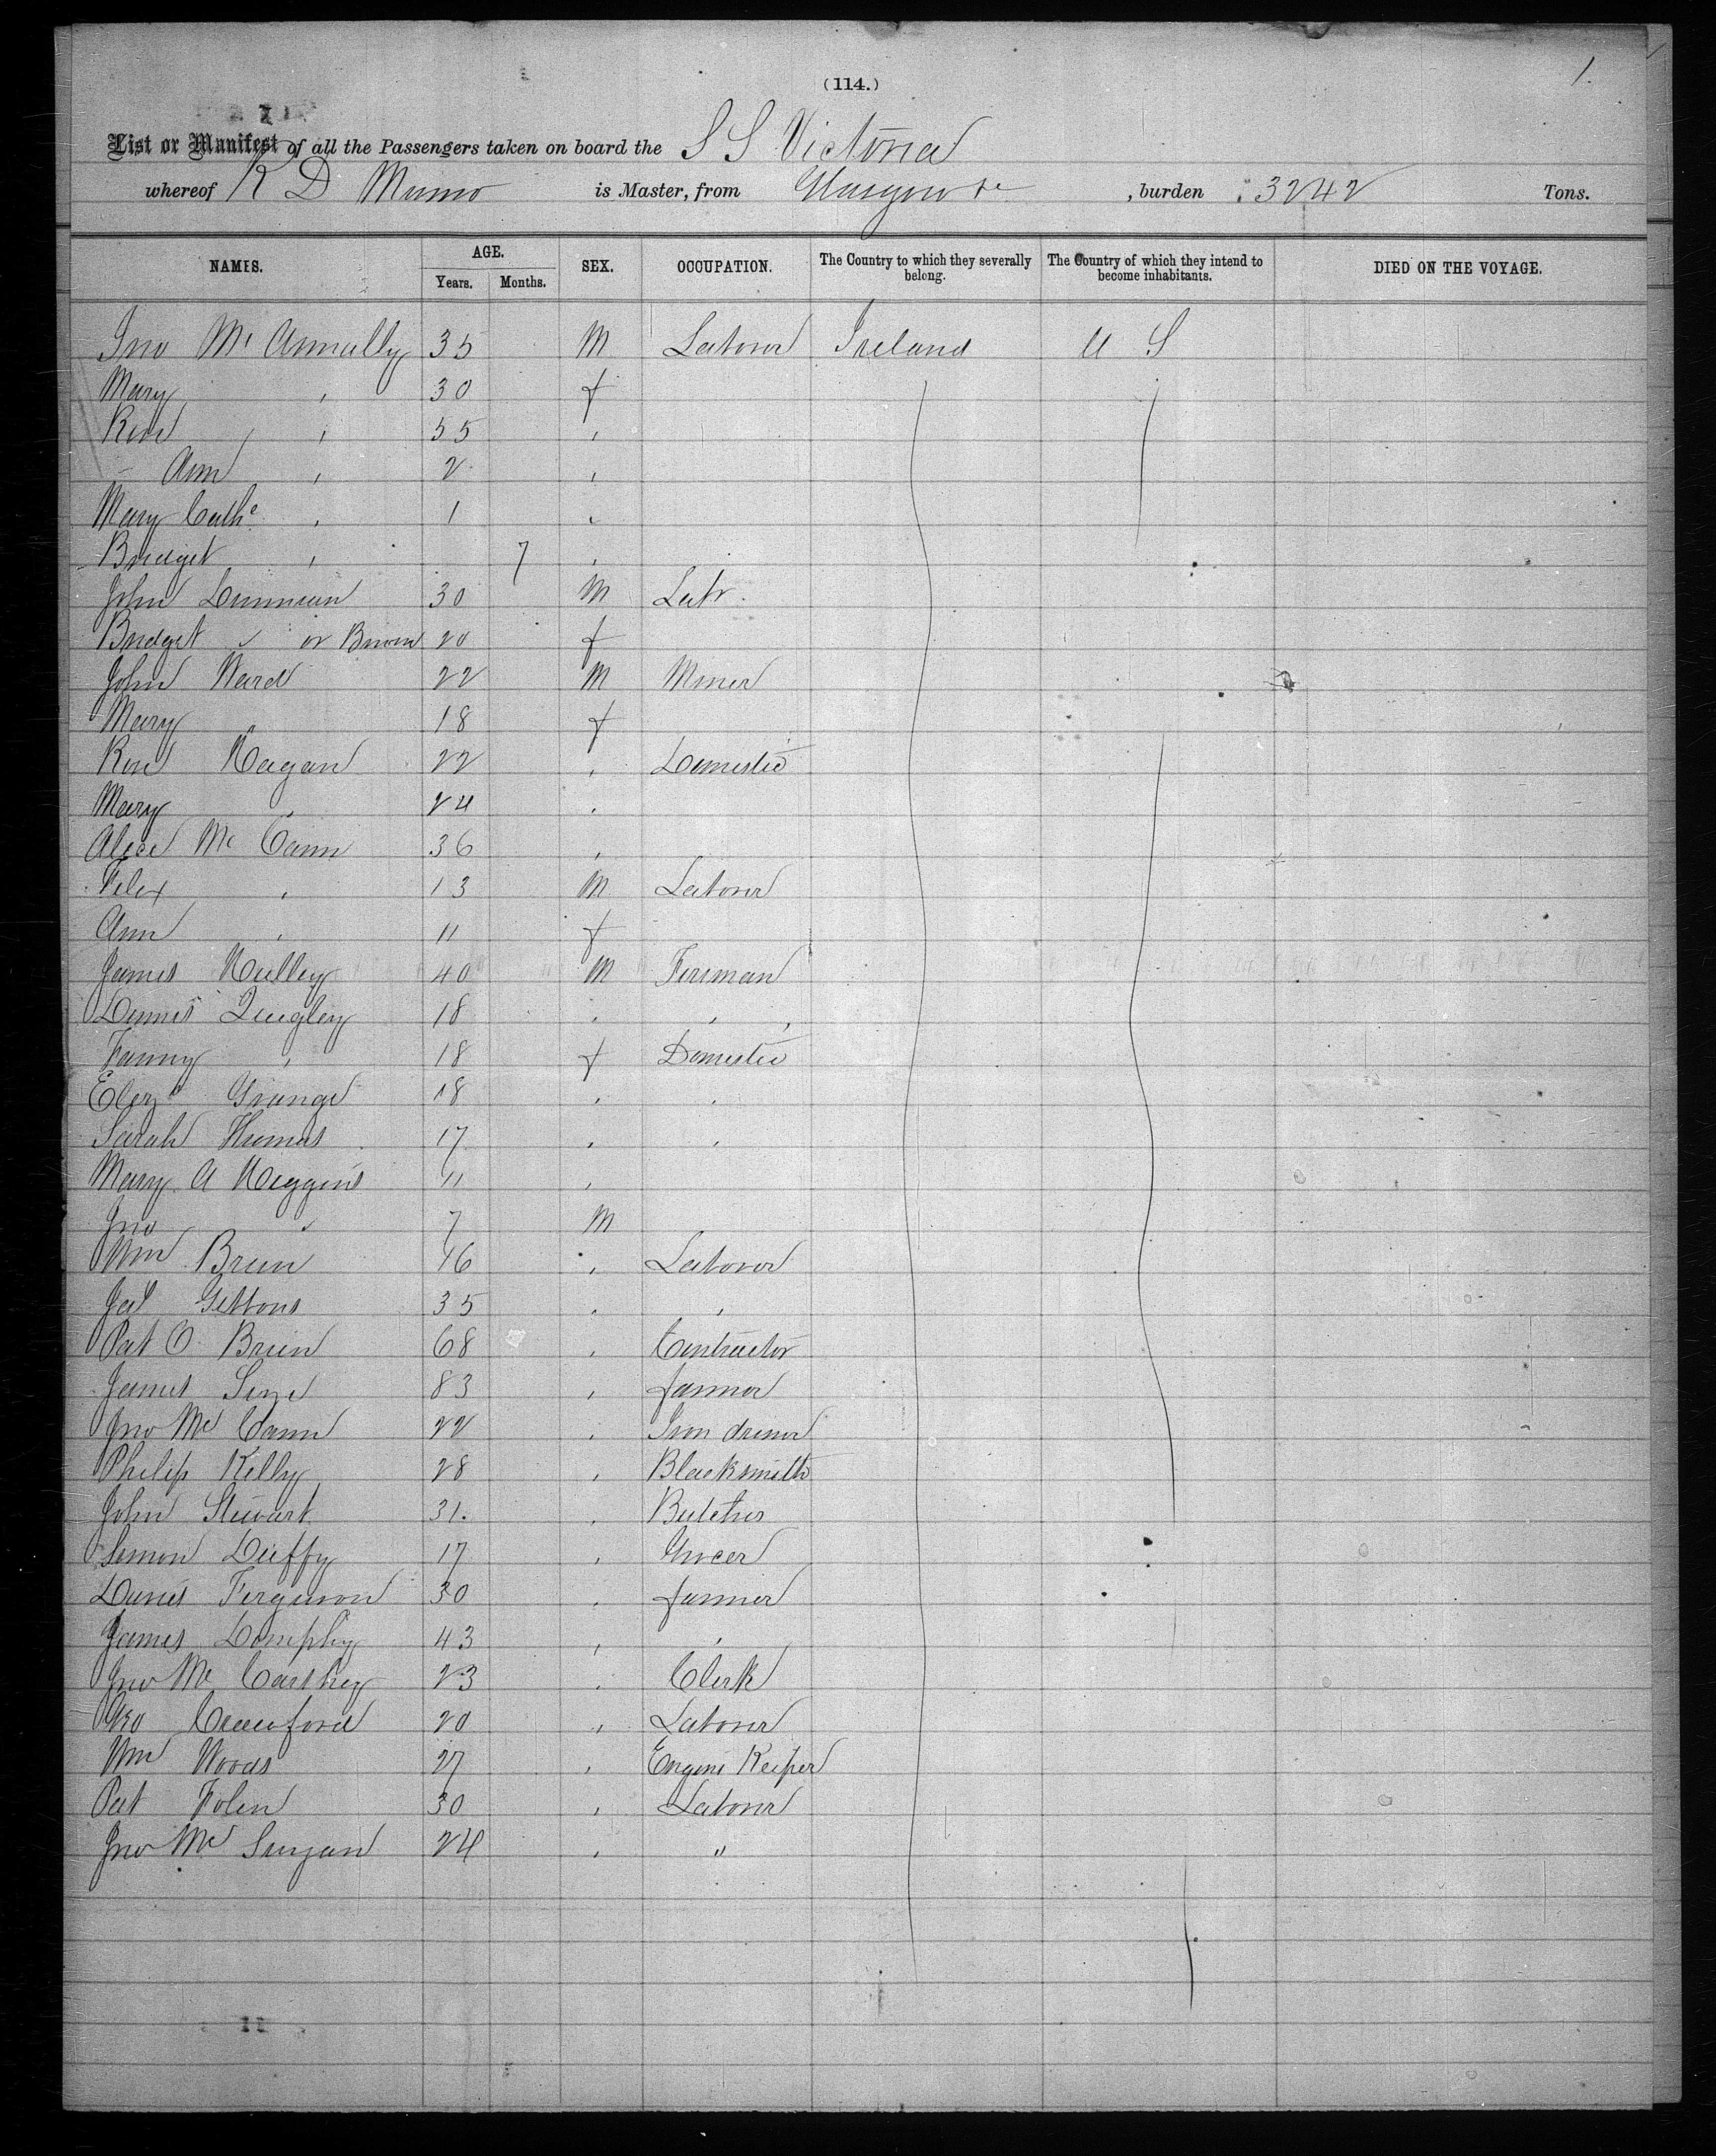 (114.)
1.
List or Manifest of all the Passengers taken on board the S S Victoria
whereof R D Munro is Master, from Glasgow &c , burden 3242 Tons.
NAMES. AGE. Years. Months. SEX. OCCUPATION. The Country to which they severally belong. The Country of which they intend to become inhabitants. DIED ON THE VOYAGE.
Jno Mc Annally 35 M Laborer Ireland U S
Mary " 30 f
Rose " " 55 "
Ann " 2 "
Mary Cathe " 1 "
Bridget " 7 "
John Dunnion 30 M Labr.
Bridget " or Brown 20 f
John Ward 22 M Miner
Mary 18 f
Rose Hagan 22 " Domestic
Mary " 24 "
Alice Mc Cann 36 "
Felix " 13 M Laborer
Ann " 11 f
James 40 M Fireman
Dennis Quigley 18 " "
Fanny " 18 f Domestic
Elizh Grange 18 " "
Sarah Thomas 17 " "
Mary A Higgins 11 "
Jno " 7 M
Wm Brien 16 " Laborer
Jas Gibbons 35 " "
Pat O Brien 68 " Contractor
James 83 " farmer
Jno Mc Cann 22 " Iron
Philip Kelly 28 " Blacksmith
John Stewart 31. " Butcher
Simon Duffy 17 " Grocer
Ferguson 30 " farmer
James 43 " "
Jno Mc Carthey 23 " Clerk
Geo Crawford 20 " Laborer
Wm Woods 27 " Engine Keeper
Pat Folen 30 " Laborer
Jno Mc 24 " "